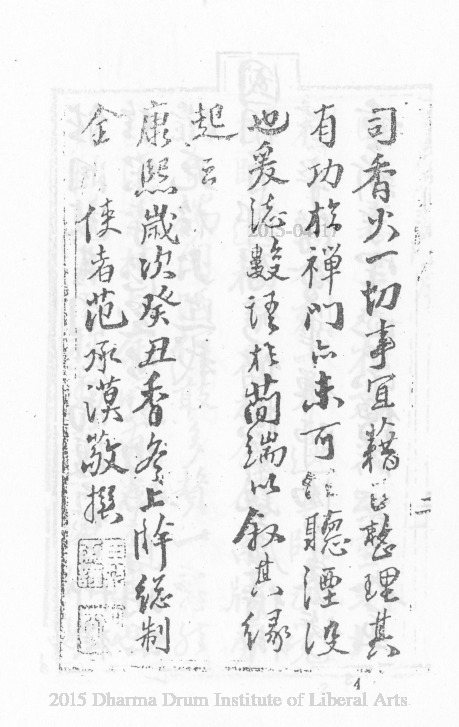 司香火一切事宜藉整理其
有功於禪門亦未可聽湮没
也爰誌數語於簡端以敘其緣
起云
康熙歲次癸丑冬上澣總制
全使者范承謨敬撰
二
2015 Dharma Drum Institute of Liberal Arts